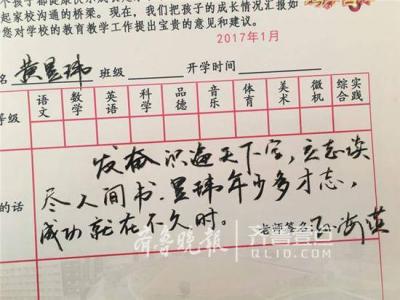 个孩子都健康快乐成长是
起家校沟通的桥梁。现在，我们把孩子的成长情况汇报如
您对学校的教育教学工作提出宝贵的意见和建议。
2017年1月
名 黄昱玮 班级 开学时间
等级 语文 数学 英语 科学 品德 音乐 体育 美术 微机 综合实践
发奋识遍天下字，立志读
尽人间书。昱玮年少多才志，
成功就在不久时。
的话
老师签名：
齐鲁晚报 齐鲁壹点